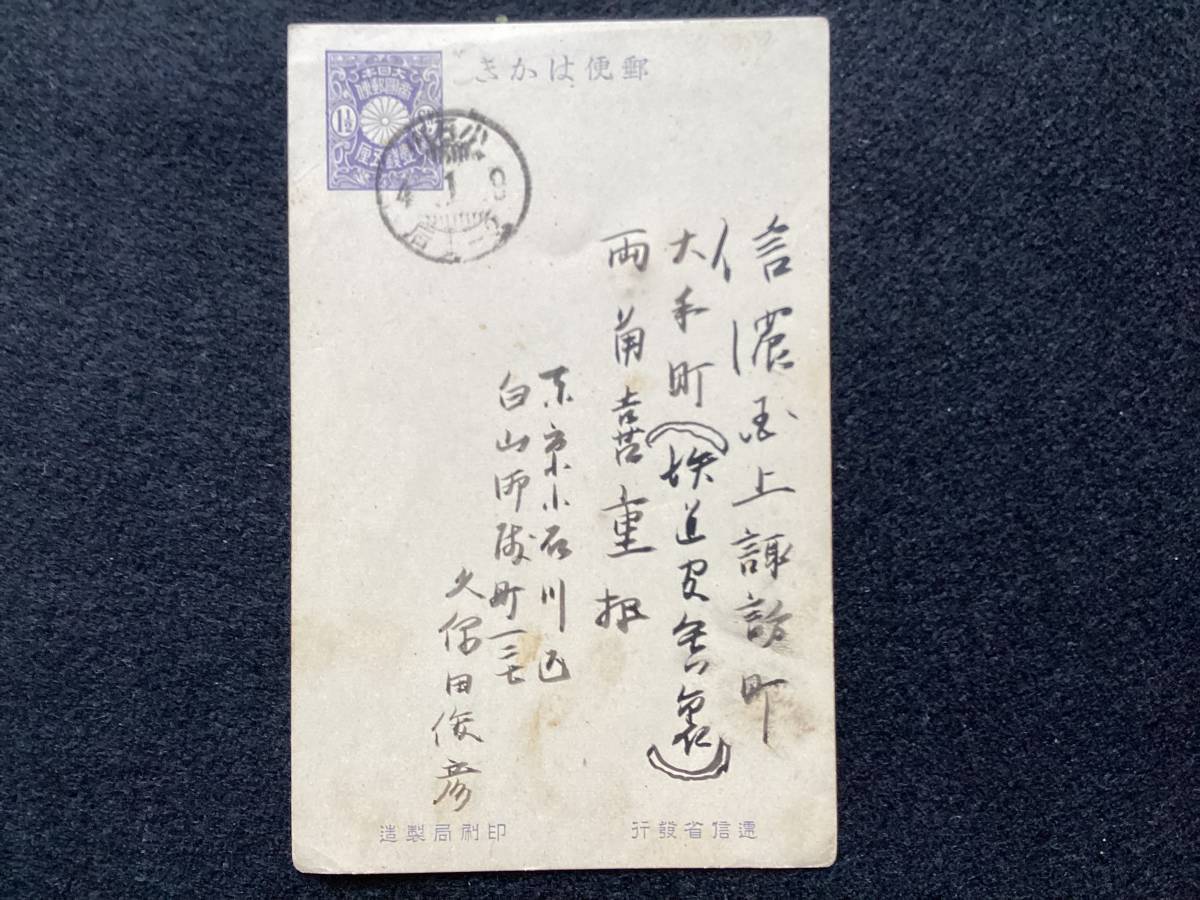 郵便はかき
大日本
帝國郵便
1½
壹錢五厘
小石川
4 1 9
信濃国上諏訪町
大手町(鉄道官舎裏)
両角喜重様
東京小石川区
白山御殿町一二七
久保田俊彦
逓信省發行
印刷局製造